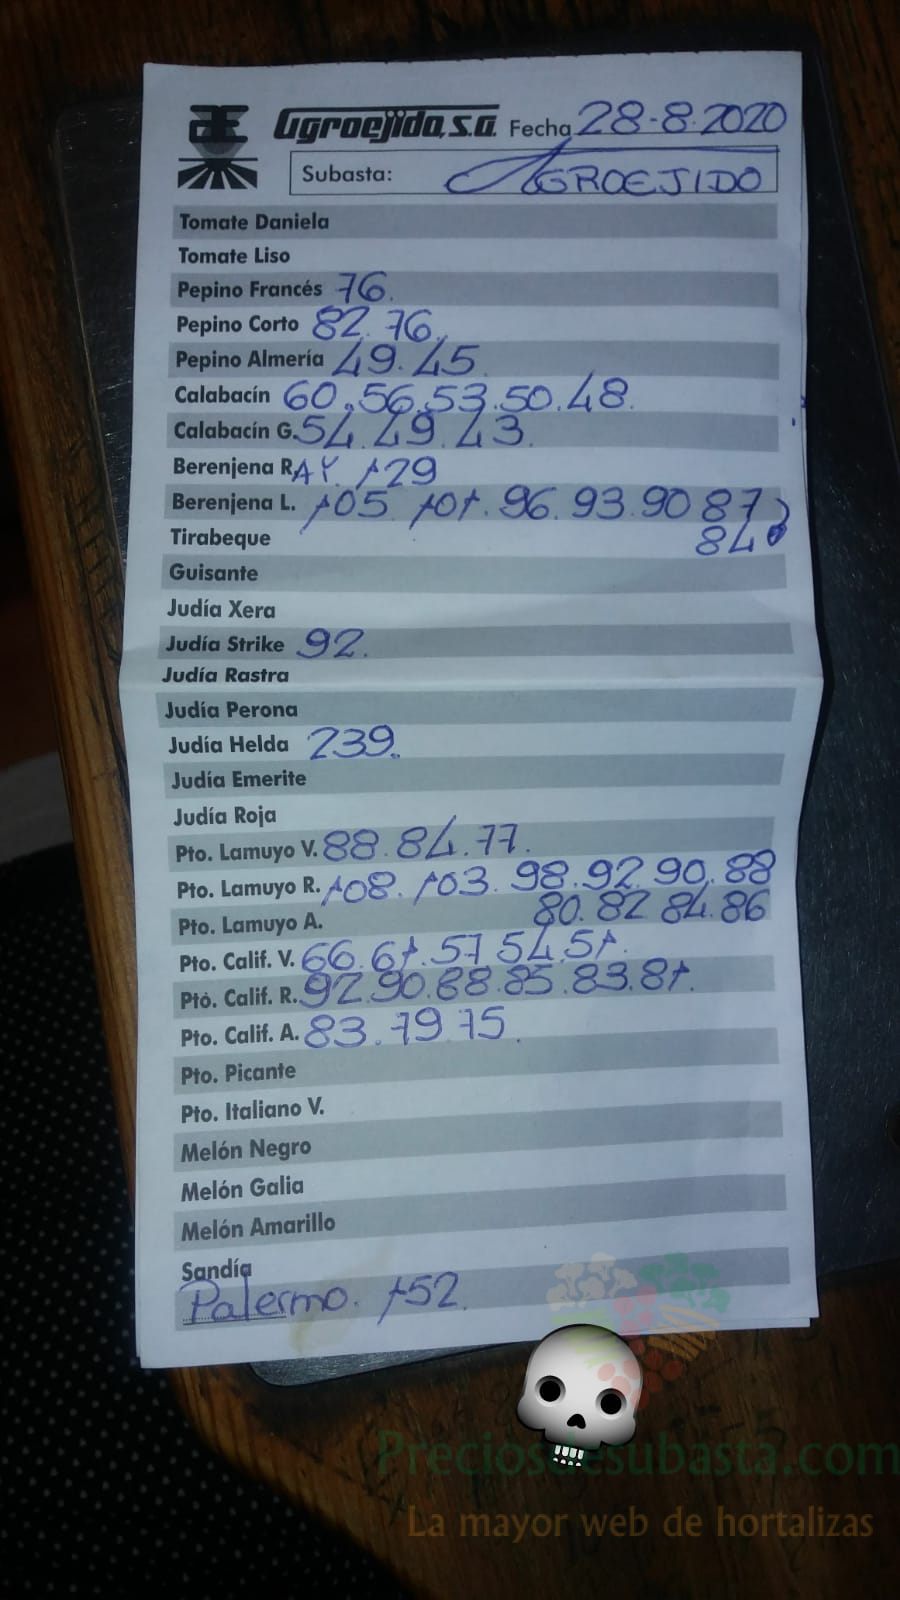 Agroejido, s.a. Fecha 28-8-2020
Subasta: AGROEJIDO
Tomate Daniela
Tomate Liso
Pepino Francés 76.
Pepino Corto 82. 76.
Pepino Almería 49. 45
Calabacín 60. 56. 53. 50. 48.
Calabacín G. 54. 49. 43.
Berenjena R. AY. 129
Berenjena L. 105. 101. 96. 93. 90 87
84
Tirabeque
Guisante
Judía Xera
Judía Strike 92.
Judía Rastra
Judía Perona
Judía Helda 239.
Judía Emerite
Judía Roja
Pto. Lamuyo V. 88. 84. 77.
Pto. Lamuyo R. 108. 103. 98. 92. 90. 88
80. 82 84. 86
Pto. Lamuyo A.
Pto. Calif. V. 66. 61. 57 54. 51.
Pto. Calif. R. 92. 90. 88. 85. 83. 81.
Pto. Calif. A. 83. 79. 75.
Pto. Picante
Pto. Italiano V.
Melón Negro
Melón Galia
Melón Amarillo
Sandía
Palermo. 152.
Preciosdesubasta.com
La mayor web de hortalizas